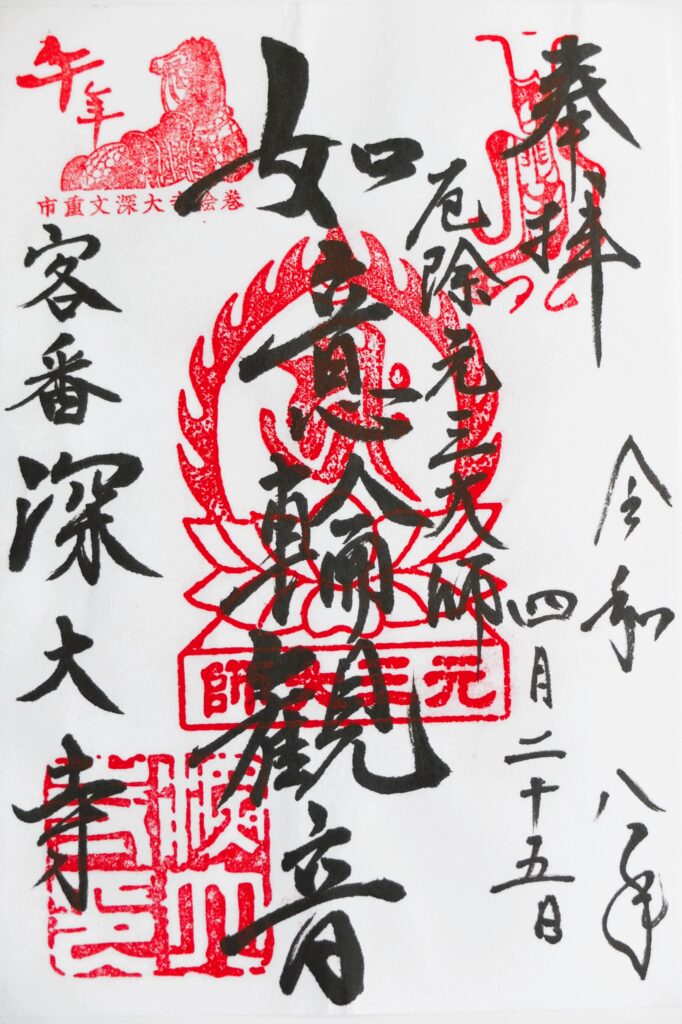 奉拝
令和八年
四月二十五日
厄除元三大師
如意輪観音
客番深大寺
午年
市重文深大寺絵巻
元三大師